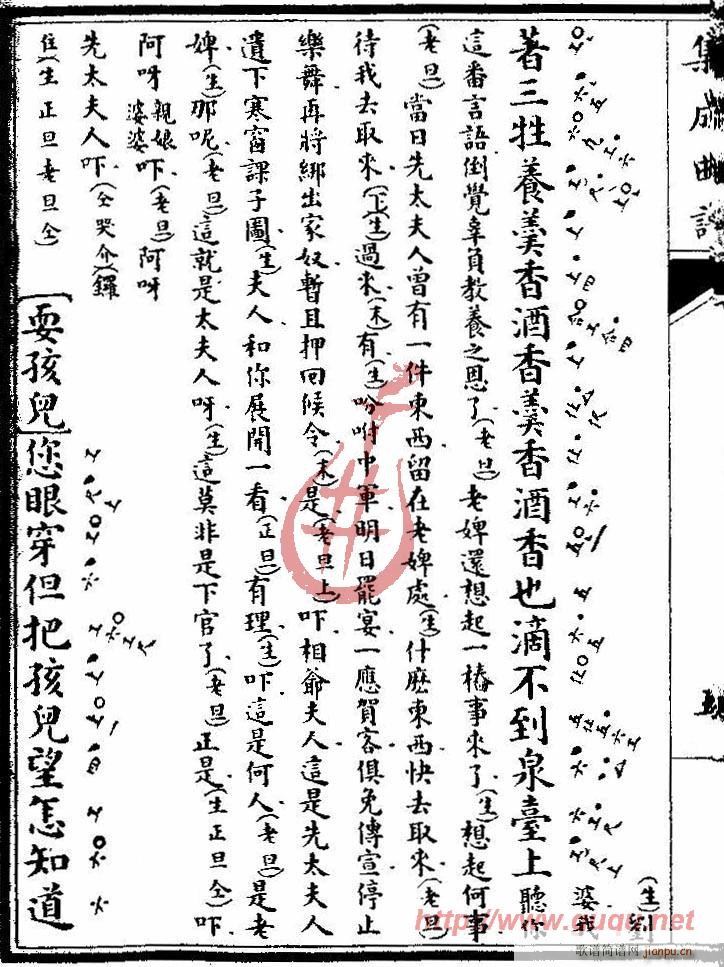 集成曲譜
著三牲養羹香酒香羹香酒香也滴不到泉臺上
(生)
婆我
聽你
這番言語倒覺辜負教養之恩了(老旦)老婢還想起一樁事來了(生)想起何事
(老旦)當日先太夫人曾有一件東西留在老婢處(生)什麽東西快去取來(老旦)
待我去取來(下)(生)過來(末)有(生)吩咐中軍明日罷宴一應賀客俱免傳宣停止
樂舞再將綁出家奴暫且押回候令(末)是(老旦上)吓相爺夫人這是先太夫人
遺下寒窗課子圖(生)夫人和你展開一看(正旦)有理(生)吓這是何人(老旦)是老
婢(生)那呢(老旦)這就是太夫人呀(生)這莫非是下官了(老旦)正是(生正旦仝)吓
阿呀親娘婆婆吓(老旦)阿呀
先太夫人吓(仝哭介)鑼
住(生正旦老旦仝)[耍孩兒]您眼穿但把孩兒望怎知道
http://www.ququ.net
歌谱简谱网
jianpu.cn